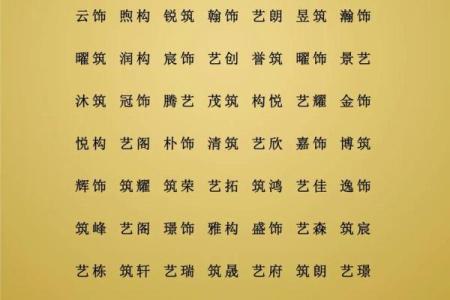 云饰 煦构 锐筑 翰饰 艺朗 昱筑 瀚饰
曜筑 润构 宸饰 艺创 誉筑 曜饰 景艺
沐筑 冠饰 腾艺 茂筑 构悦 艺耀 金饰
悦构 艺阁 朴饰 清筑 艺欣 嘉饰 博筑
辉饰 筑耀 筑荣 艺拓 筑鸿 艺佳 逸饰
筑峰 艺阁 璟饰 雅构 盛饰 艺森 筑宸
艺栋 筑轩 艺瑞 筑晟 艺府 筑朗 艺璟